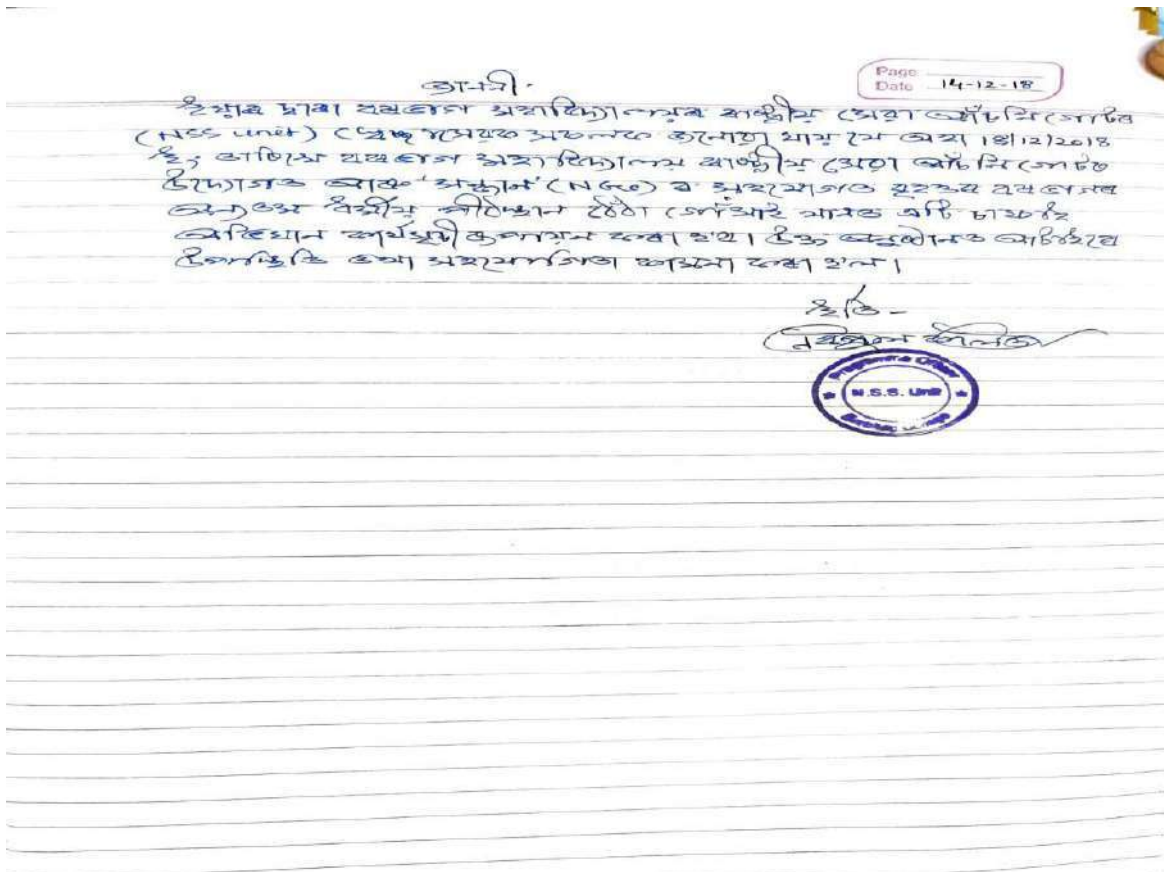 Page
Date 14-12-18
জাননী.
ইয়াৰ দ্বাৰা বৰভাগ মহাবিদ্যালয়ৰ ৰাষ্ট্ৰীয় সেৱা আঁচনি গোটৰ
(NSS unit) স্বেচ্ছাসেৱক সকলক জনোৱা যায় যে অহা 18/12/2018
ইং তাৰিখে বৰভাগ মহাবিদ্যালয় ৰাষ্ট্ৰীয় সেৱা আঁচনি গোটৰ
উদ্যোগত আৰু 'সন্ধান' (NGO) ৰ সহযোগত বৃহত্তৰ বৰভাগৰ
অন্যতম ধৰ্মীয় পীঠস্থান গোঁসাই থানত এটি চাফাই
অভিযান কাৰ্যসূচী ৰূপায়ন কৰা হ'ব। উক্ত অনুষ্ঠানত আটাইৰে
উপস্থিতি তথা সহযোগিতা কামনা কৰা হ'ল।
ইতি-
কলিতা
Programme Officer
N.S.S. Unit